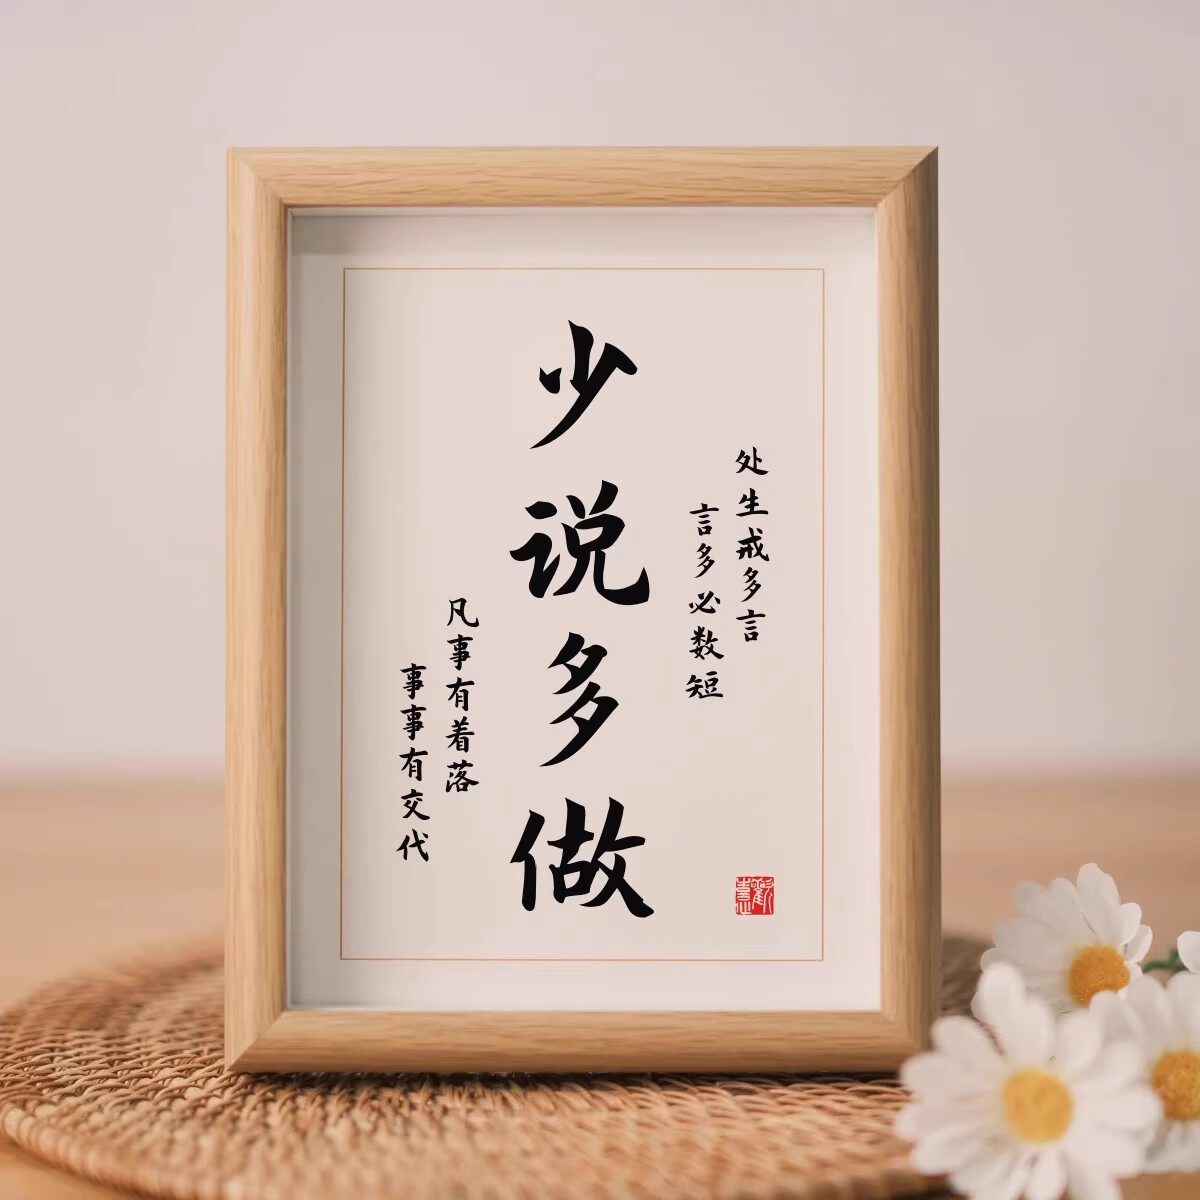 处生戒多言
言多必数短
少说多做
凡事有着落
事事有交代